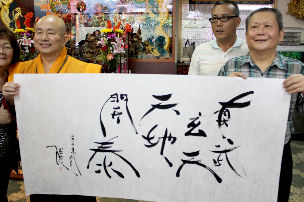 真武
玄天
天地
開泰